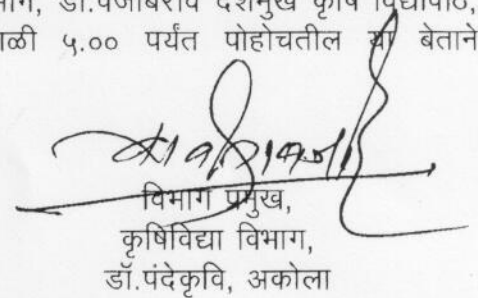 डॉ.पंजाबराव देशमुख कृषि विद्यापीठ,
५.०० पर्यंत पोहोचतील या बेताने
विभाग प्रमुख,
कृषिविद्या विभाग,
डॉ.पंदेकृवि, अकोला